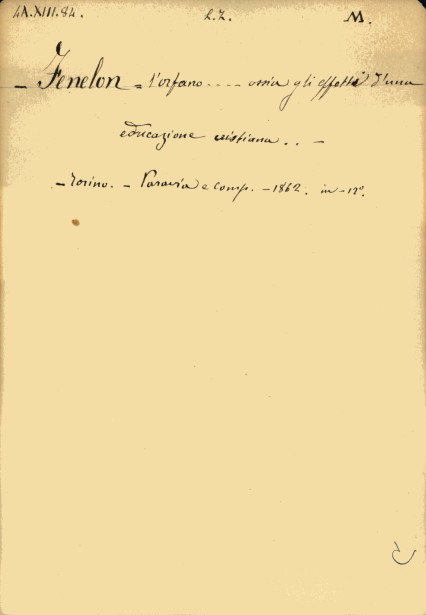 4A.XIII.84. L.Z. M.
- Fenelon = l'orfano .... ossia gli effetti d'una
educazione cristiana .. -
- Torino. - Paravia e comp. - 1862. in-12º.